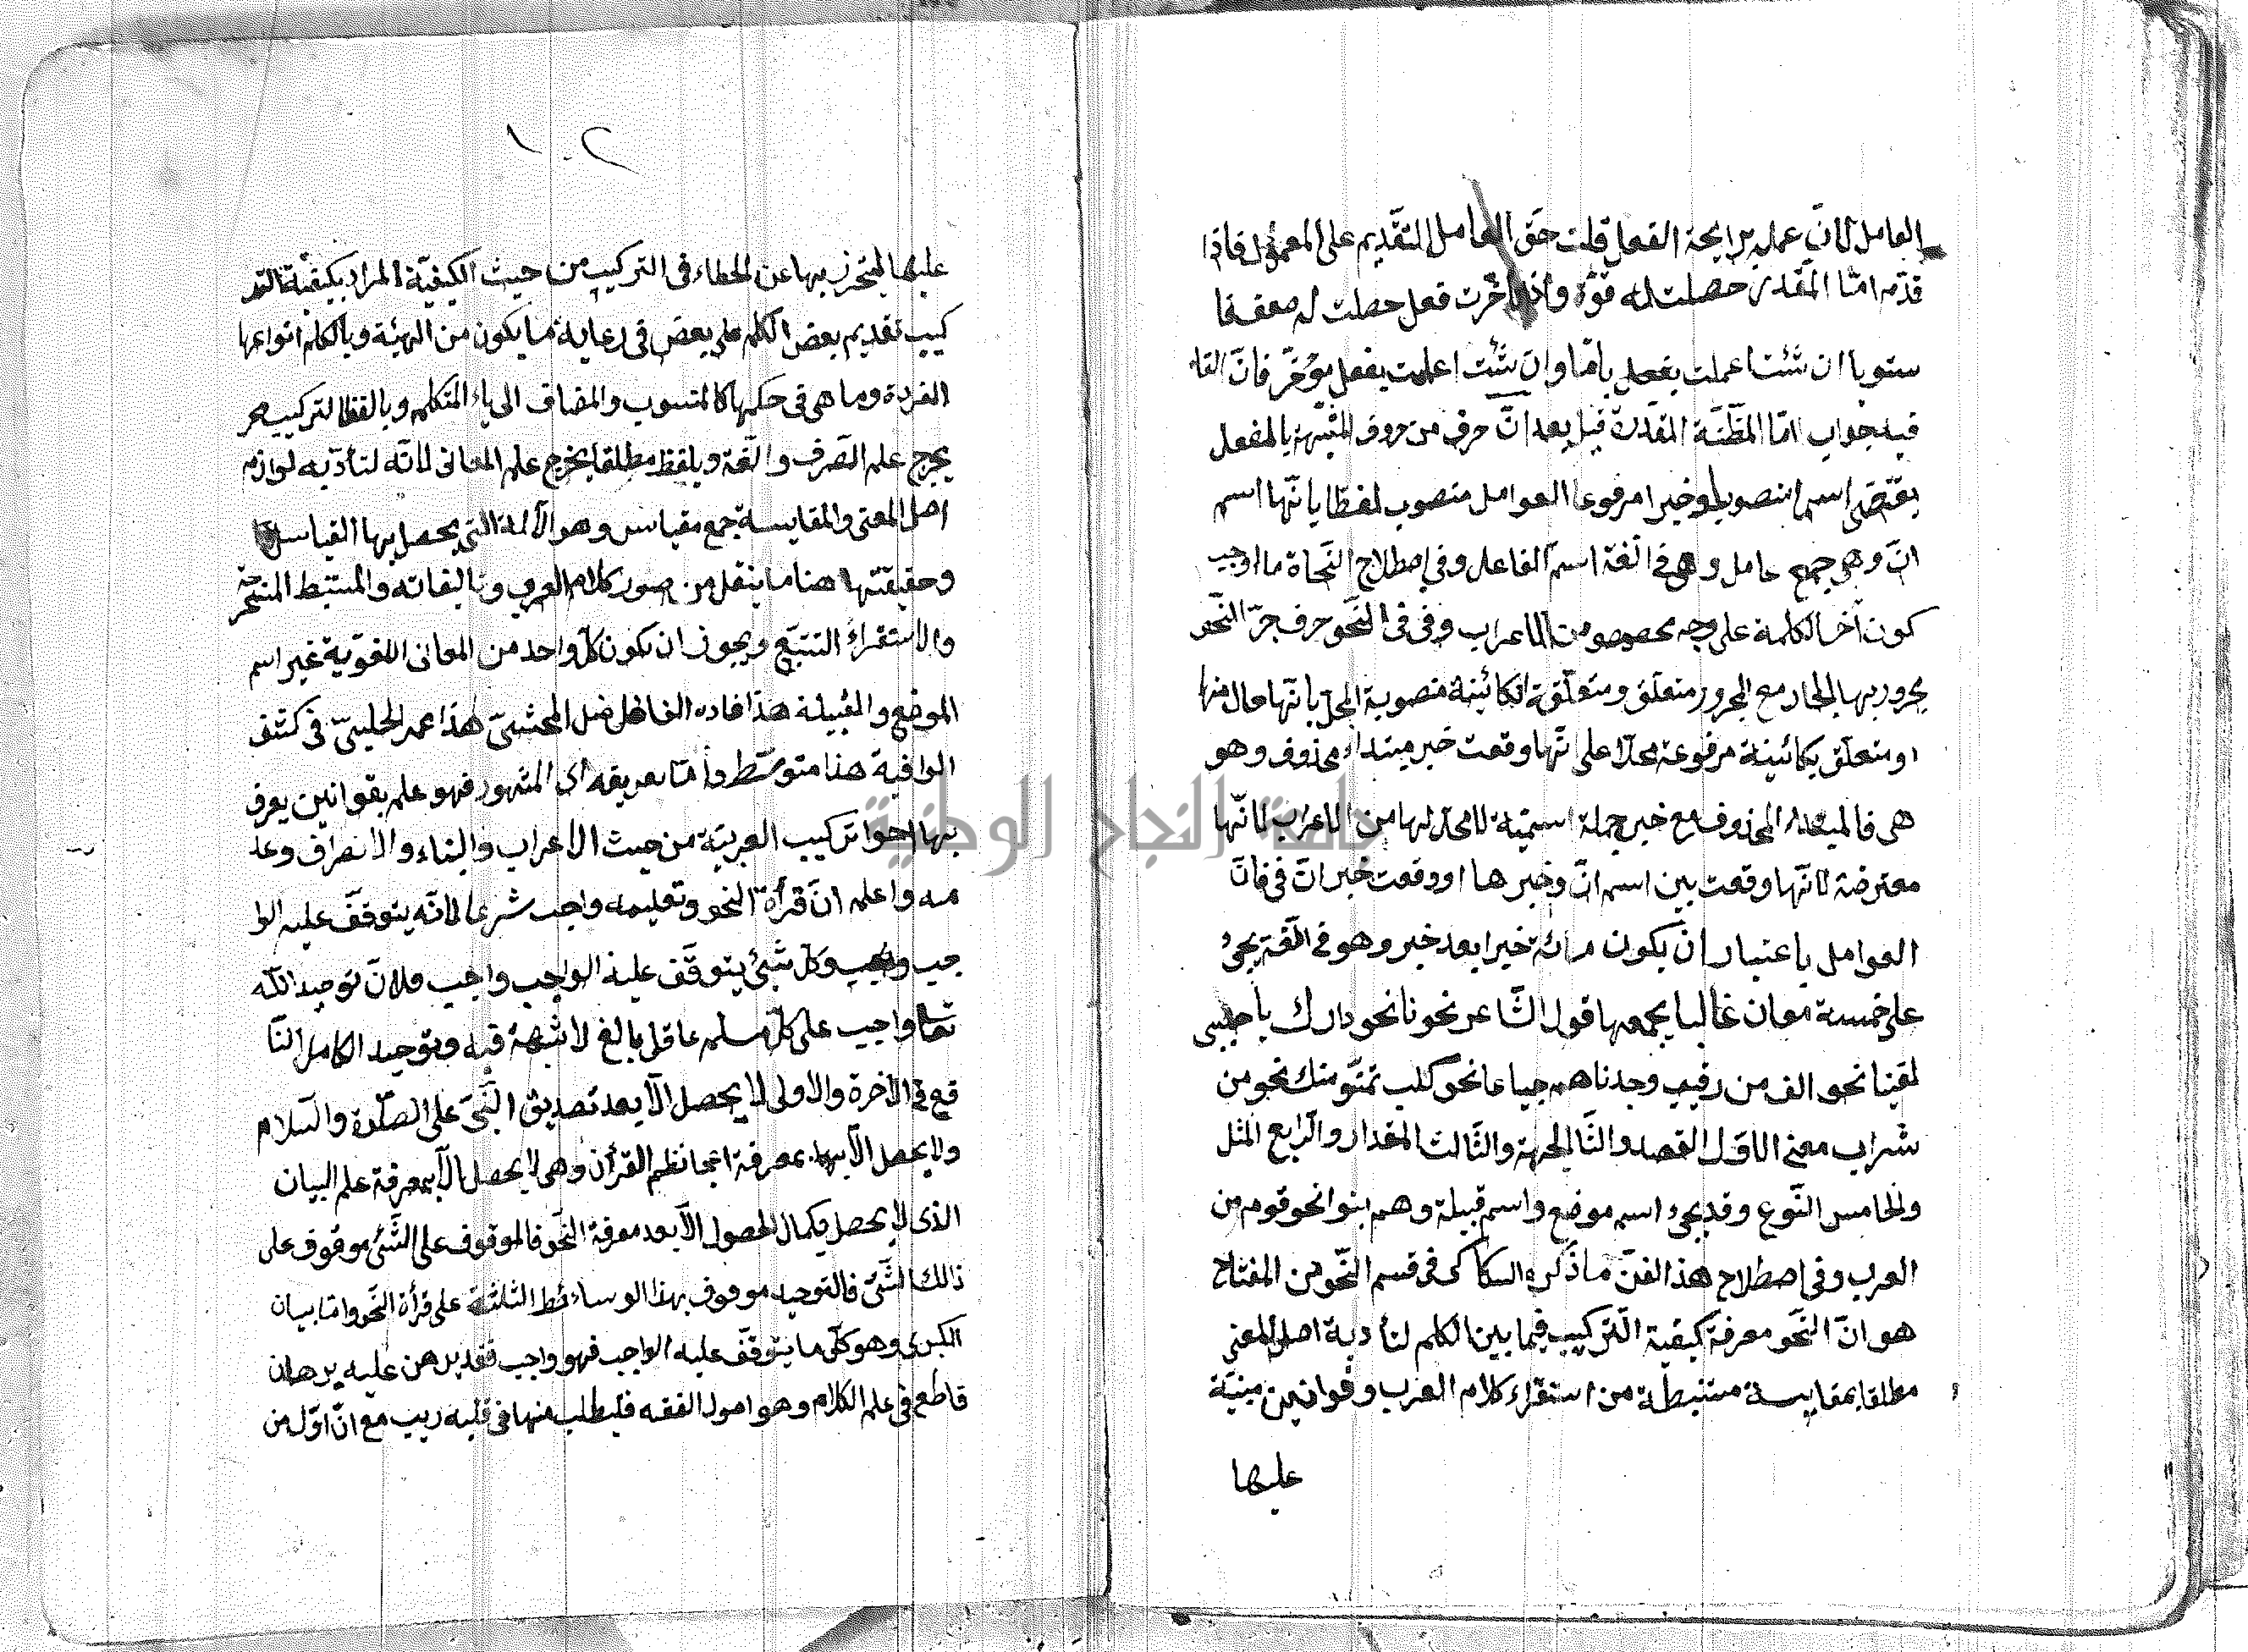 العامل لان عمله برايحة الفعل قلت حق العامل التقديم على المعمول فاذا
قدم اما المقدر حصلت له قوة واذا اخرت فعل حصلت له ضعف فا
ستويا ان شئت اعملت بفعل باما وان شئت اعلمت بفعل مؤخر فان الفاء
فيه جواب امّا المظنة المقدرة قبل بعد انّ حرف من حروف المشبهة بالفعل
يقتضى اسما منصوبا وخبرا مرفوعا العوامل منصوب لفظا بانها اسم
انّ وهو جمع عامل وهو في الغة اسم الفاعل وفي اصطلاح النحاة ما اوجب
كون آخر الكلمة على وجه مخصوص من الاعراب وفى فى النحو حرف جرّ النحو
مجرور بها الجار مع المجرور متعلق ومتعلقة الكائينة منصوبة المحل بانها حال منها
او متعلق بكائينة مرفوعة محلا على انها وقعت خبر مبتداء محذوف وهو
هى فالمبتداء المحذوف مع خبره جملة اسمية لا محل لها من الاعراب لانها
معترضة لانها وقعت بين اسم انّ وخبرها او وقعت خبر انّ فى فانّ
العوامل باعتبار ان يكون مائة خبرا بعد خبر وهو فى الغة يجئ
على خمسة معان غالبا يجمعها قول الشاعر نحونا نحو دارك يا حبيبى
لقينا نحو الف من رقيب وجدناهم جياعا نحو كلب تمنّو منك نحو من
شراب معنى الاول القصد والثا الجهة والثالث المقدار والرابع المثل
والخامس النوع وقد يجئ اسم موضع واسم قبيلة وهم بنوا نحو قوم من
العرب وفى اصطلاح هذا الفن ما ذكره السكاكى فى قسم النحو من المفتاح
هو انّ النحو معرفة كيفية التركيب فيما بين الكلم لتأدية اصل المعنى
مطلقا بمقايسة مستنبطة من استقراء كلام العرب وقوانين مبنية
عليها
٢٠١
عليها ليتحرز بها عن الخطاء فى التركيب من حيث الكيفية المراد بكيفية التر
كيب تقديم بعض الكلم على بعض فى رعاية ما يكون من الهيئة وبالكلم انواعها
المفردة وما هى فى حكمها كالمنسوب والمضاف الى ياء المتكلم وبالفظ التركيب
يخرج علم الصرف والغة وبلفظ مطلقا يخرج علم المعانى لانه لتأدية لوازم
اصل المعنى والمقايسة جمع مقياس وهو الآلة التى يحصل بها القياس
وحقيقتها هنا ما ينقل من صور كلام العرب وتاليفاته والمستبط المستخرج
والاستقراء التتبع ويجوز ان يكون كل واحد من المعانى اللغوية غير اسم
الموضع والقبيلة هذا افاده الفاضل المحشى هذا عمر الحلبىّ فى كشف
الوافية هذا متوسط وأما تعريفه اى المشهور فهو علم بقوانين يعرف
بها احوا تركيب العربية من حيث الاعراب والبناء والانصراف وعد
مه واعلم انّ قرأة النحو وتعليمه واجب شرعا لانه يتوقف عليه الوا
جب وكل شئ يتوقف عليه الواجب واجب فلان توحيد الله
تعا واجب على كل مسلم عاقل بالغ لا شبهة فيه وتوحيد الكامل النا
فع فى الآخرة والاولى لا يحصل الا بعد تصديق النبى على الصلوة والسلام
ولا يحصل الا بمعرفة اعجا نظم القرأن وهى لا يحصل الا بمعرفة علم البيان
الذى لا يحصل بكمال الحصول الا بعد معرفة النحو فالموقوف على الشئ موقوف على
ذالك الشئ فالتوحيد موقوف بهذا الوسائط الثلثة على قرأة النحو واما بيان
الكبرى وهو كل ما يتوقف عليه الواجب فهو واجب فقد برهن عليه برهان
قاطع فى علم الكلام وهو اصول الفقه فليطلب منها فى قلبه ريب مع انّ اول من
جامعة النجاح الوطنية